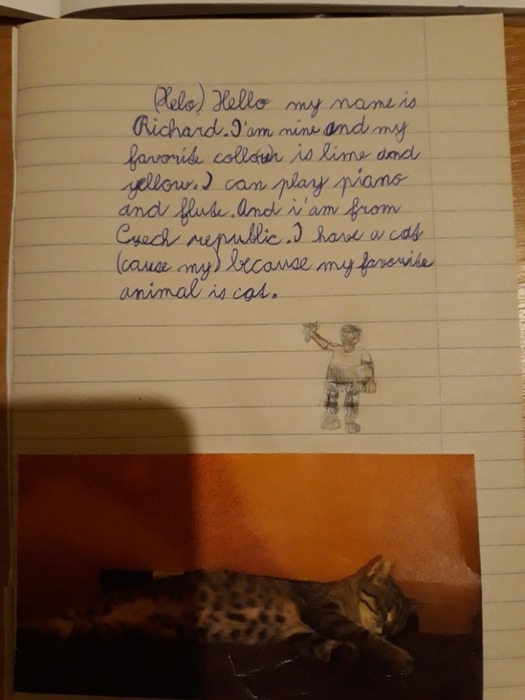 (Helo) Hello my name is
Richard. I'am nine and my
favorite collour is lime and
yellow. I can play piano
and flute. And i'am from
Czech republic. I have a cat
(cause my) because my favorite
animal is cat.